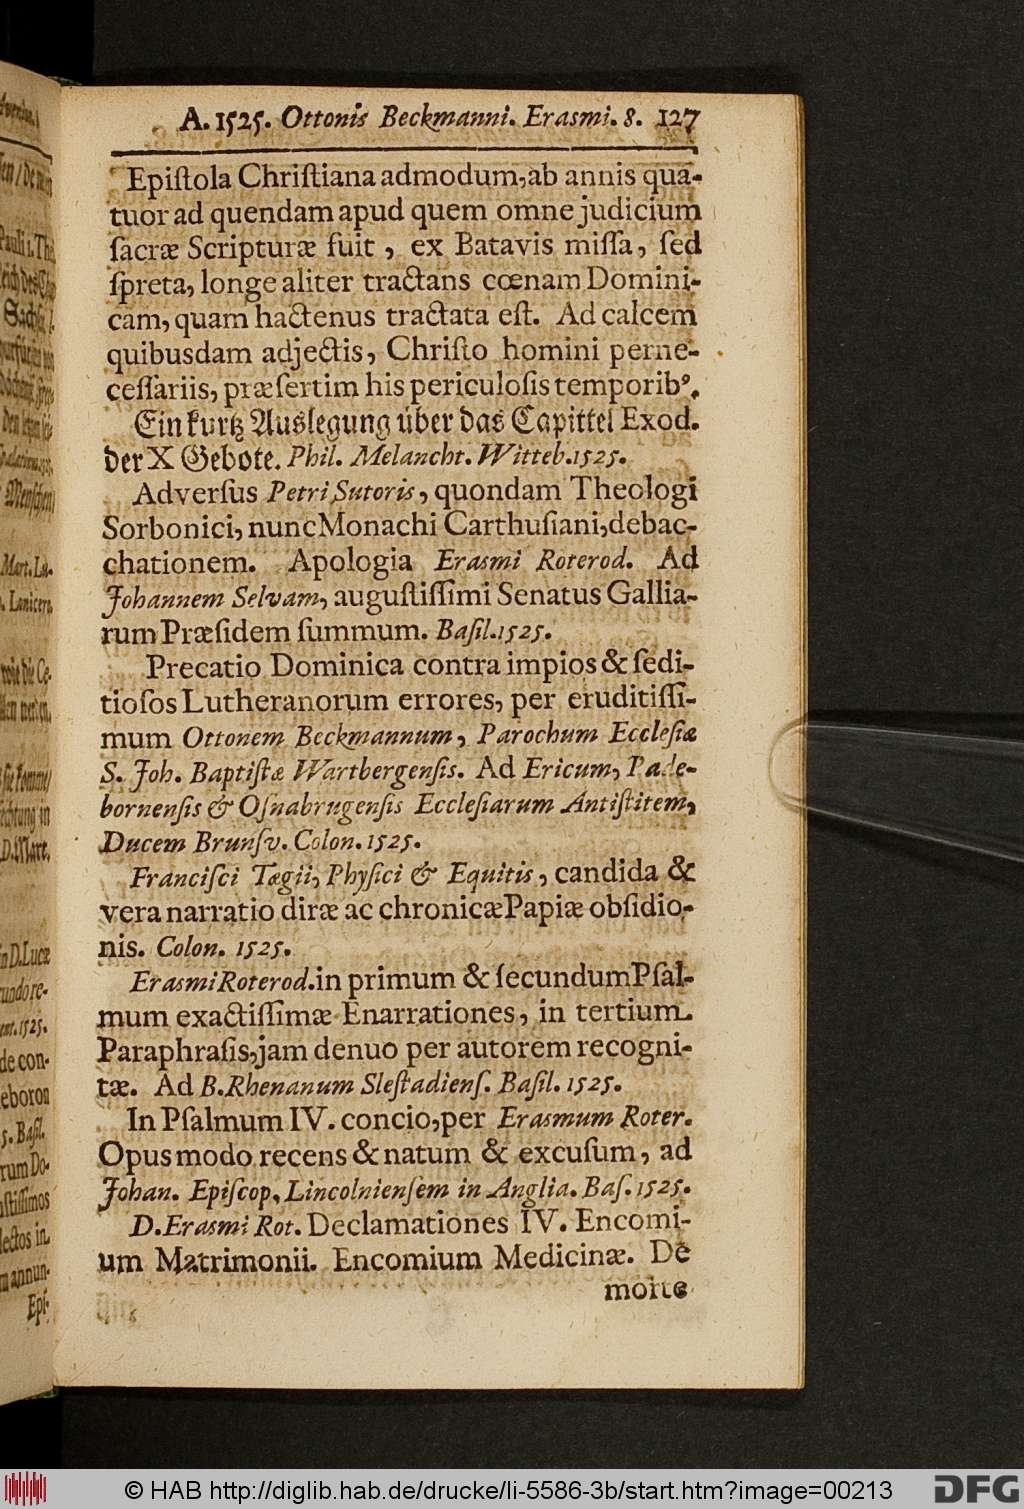 A. 1525. Ottonis Beckmanni. Erasmi. 8. 127
Epiſtola Chriſtiana admodum, ab annis qua-
tuor ad quendam apud quem omne judicium
ſacræ Scripturæ fuit, ex Batavis miſſa, ſed
ſpreta, longe aliter tractans cœnam Domini-
cam, quam hactenus tractata eſt. Ad calcem
quibusdam adjectis, Chriſto homini perne-
ceſſariis, præſertim his periculoſis temporibꝰ.
Ein kurtz Auslegung über das Capittel Exod.
der X Gebote. Phil. Melancht. Witteb. 1525.
Adverſus Petri Sutoris, quondam Theologi
Sorbonici, nunc Monachi Carthuſiani, debac-
chationem. Apologia Erasmi Roterod. Ad
Johannem Selvam, auguſtiſſimi Senatus Gallia-
rum Præſidem ſummum. Baſil. 1525.
Precatio Dominica contra impios & ſedi-
tioſos Lutheranorum errores, per eruditiſſi-
mum Ottonem Beckmannum, Parochum Eccleſiæ
S. Joh. Baptiſtæ Wartbergenſis. Ad Ericum, Pade-
bornenſis & Oſnabrugenſis Eccleſiarum Antiſtitem,
Ducem Brunſv. Colon. 1525.
Franciſci Tægii, Phyſici & Equitis, candida &
vera narratio diræ ac chronicæ Papiæ obſidio-
nis. Colon. 1525.
Erasmi Roterod. in primum & ſecundum Pſal-
mum exactiſſimæ Enarrationes, in tertium
Paraphraſis, jam denuo per autorem recogni-
tæ. Ad B. Rhenanum Sleſtadienſ. Baſil. 1525.
In Pſalmum IV. concio, per Erasmum Roter.
Opus modo recens & natum & excuſum, ad
Johan. Epiſcop. Lincolnienſem in Anglia. Baſ. 1525.
D. Erasmi Rot. Declamationes IV. Encomi-
um Matrimonii. Encomium Medicinæ. De
morte
© HAB http://diglib.hab.de/drucke/li-5586-3b/start.htm?image=00213
DFG